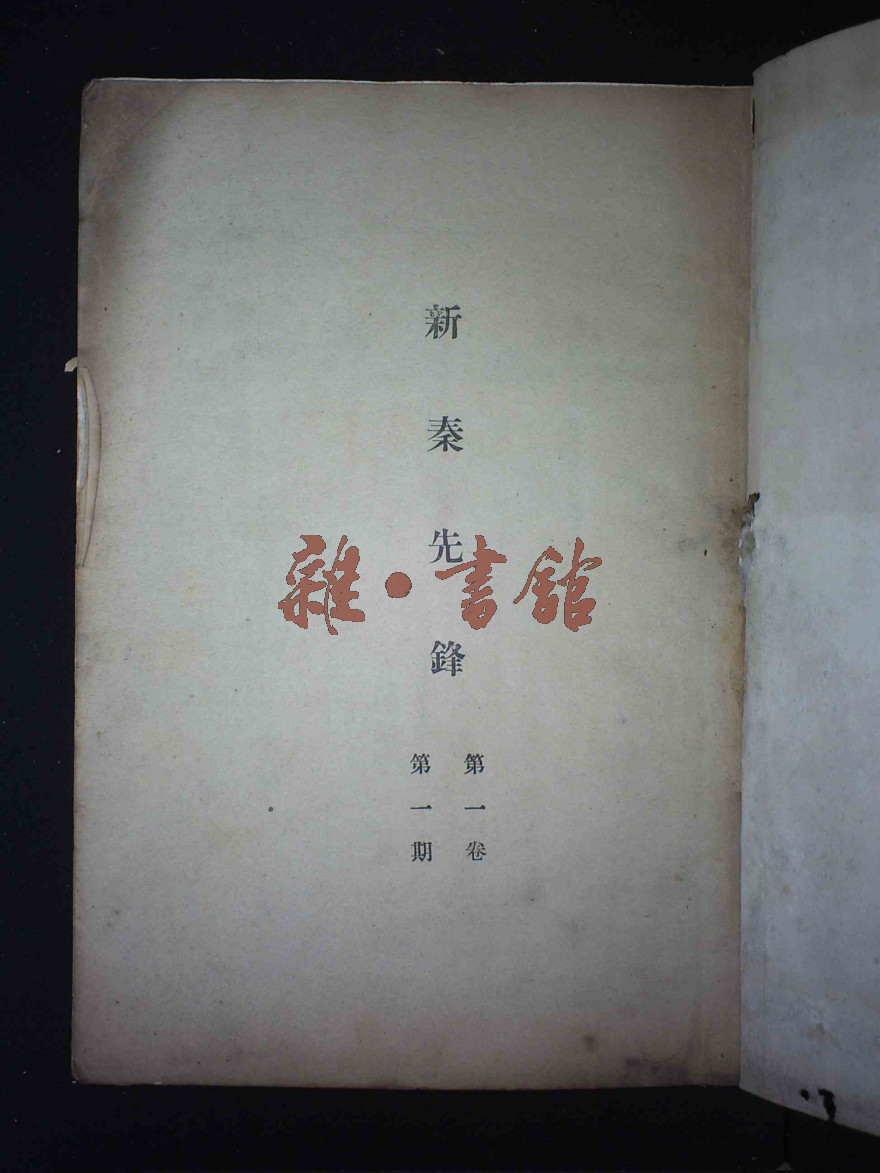 新秦先鋒
第一卷
第一期
雜·書館